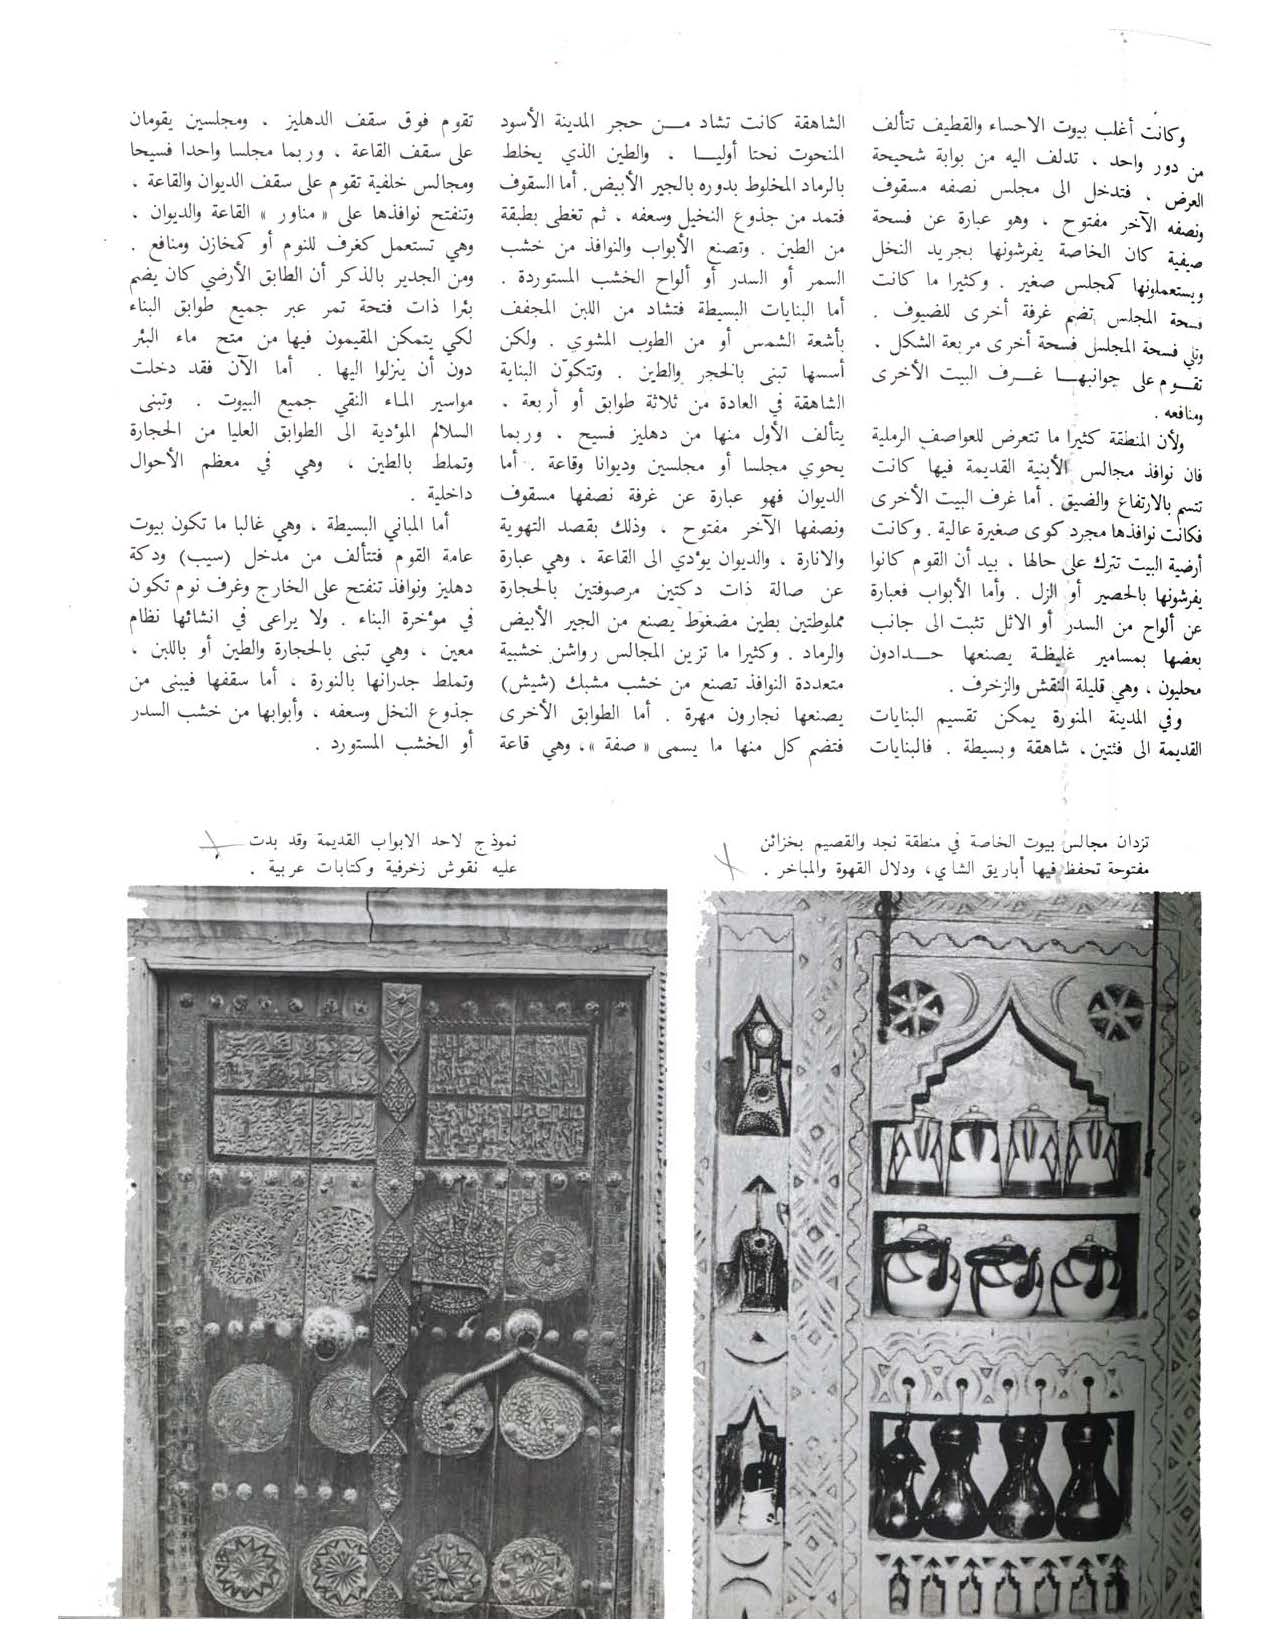 وكانت أغلب بيوت الاحساء والقطيف تتألف
من دور واحد ، تدلف اليه من بوابة شحيحة
العرض ، فتدخل الى مجلس نصفه مسقوف
ونصفه الآخر مفتوح ، وهو عبارة عن فسحة
صيفية كان الخاصة يفرشونها بجريد النخل
ويستعملونها كمجلس صغير . وكثيرا ما كانت
فسحة المجلس تضم غرفة أخرى للضيوف .
وتلي فسحة المجلس فسحة أخرى مربعة الشكل ،
تقـــوم على جوانبهـــا غـــرف البيت الأخرى
ومنافعه .
ولأن المنطقة كثيرا ما تتعرض للعواصف الرملية
فان نوافذ مجالس الأبنية القديمة فيها كانت
تتسم بالارتفاع والضيق . أما غرف البيت الأخرى
فكانت نوافذها مجرد كوى صغيرة عالية . وكانت
أرضية البيت تترك على حالها ، بيد أن القوم كانوا
يفرشونها بالحصير أو الزل . وأما الأبواب فعبارة
عن ألواح من السدر أو الاثل تثبت الى جانب
بعضها بمسامير غليظة يصنعها حـــدادون
محليون ، وهي قليلة النقش والزخرف .
وفي المدينة المنورة يمكن تقسيم البنايات
القديمة الى فئتين، شاهقة وبسيطة . فالبنايات
الشاهقة كانت تشاد مـــن حجر المدينة الأسود
المنحوت نحتا أوليـــا ، والطين الذي يخلط
بالرماد المخلوط بدوره بالجير الأبيض. أما السقوف
فتمد من جذوع النخيل وسعفه ، ثم تغطى بطبقة
من الطين . وتصنع الأبواب والنوافذ من خشب
السمر أو السدر أو ألواح الخشب المستوردة .
أما البنايات البسيطة فتشاد من اللبن المجفف
بأشعة الشمس أو من الطوب المشوي . ولكن
أسسها تبنى بالحجر والطين . وتتكوّن البناية
الشاهقة في العادة من ثلاثة طوابق أو أربعة ،
يتألف الأول منها من دهليز فسيح ، وربما
يحوي مجلسا أو مجلسين وديوانا وقاعة . أما
الديوان فهو عبارة عن غرفة نصفها مسقوف
ونصفها الآخر مفتوح ، وذلك بقصد التهوية
والانارة ، والديوان يؤدي الى القاعة ، وهي عبارة
عن صالة ذات دكتين مرصوفتين بالحجارة
مملوطتين بطين مضغوط يصنع من الجير الأبيض
والرماد . وكثيرا ما تزين المجالس رواشن خشبية
متعددة النوافذ تصنع من خشب مشبك (شيش)
يصنعها نجارون مهرة . أما الطوابق الأخرى
فتضم كل منها ما يسمى « صفة »، وهي قاعة
تقوم فوق سقف الدهليز ، ومجلسين يقومان
على سقف القاعة ، وربما مجلسا واحدا فسيحا
ومجالس خلفية تقوم على سقف الديوان والقاعة ،
وتنفتح نوافذها على « مناور » القاعة والديوان ،
وهي تستعمل كغرف للنوم أو كمخازن ومنافع .
ومن الجدير بالذكر أن الطابق الأرضي كان يضم
بئرا ذات فتحة تمر عبر جميع طوابق البناء
لكي يتمكن المقيمون فيها من متح ماء البئر
دون أن ينزلوا اليها . أما الآن فقد دخلت
مواسير الماء النقي جميع البيوت . وتبنى
السلالم المؤدية الى الطوابق العليا من الحجارة
وتملط بالطين ، وهي في معظم الأحوال
داخلية .
أما المباني البسيطة ، وهي غالبا ما تكون بيوت
عامة القوم فتتألف من مدخل (سيب) ودكة
دهليز ونوافذ تنفتح على الخارج وغرف نوم تكون
في مؤخرة البناء . ولا يراعى في انشائها نظام
معين ، وهي تبنى بالحجارة والطين أو باللبن ،
وتملط جدرانها بالنورة ، أما سقفها فيبنى من
جذوع النخل وسعفه ، وأبوابها من خشب السدر
أو الخشب المستورد .
تزدان مجالس بيوت الخاصة في منطقة نجد والقصيم بخزائن
مفتوحة تحفظ فيها أباريق الشاي، ودلال القهوة والمباخر .
نموذج لاحد الابواب القديمة وقد بدت
عليه نقوش زخرفية وكتابات عربية .